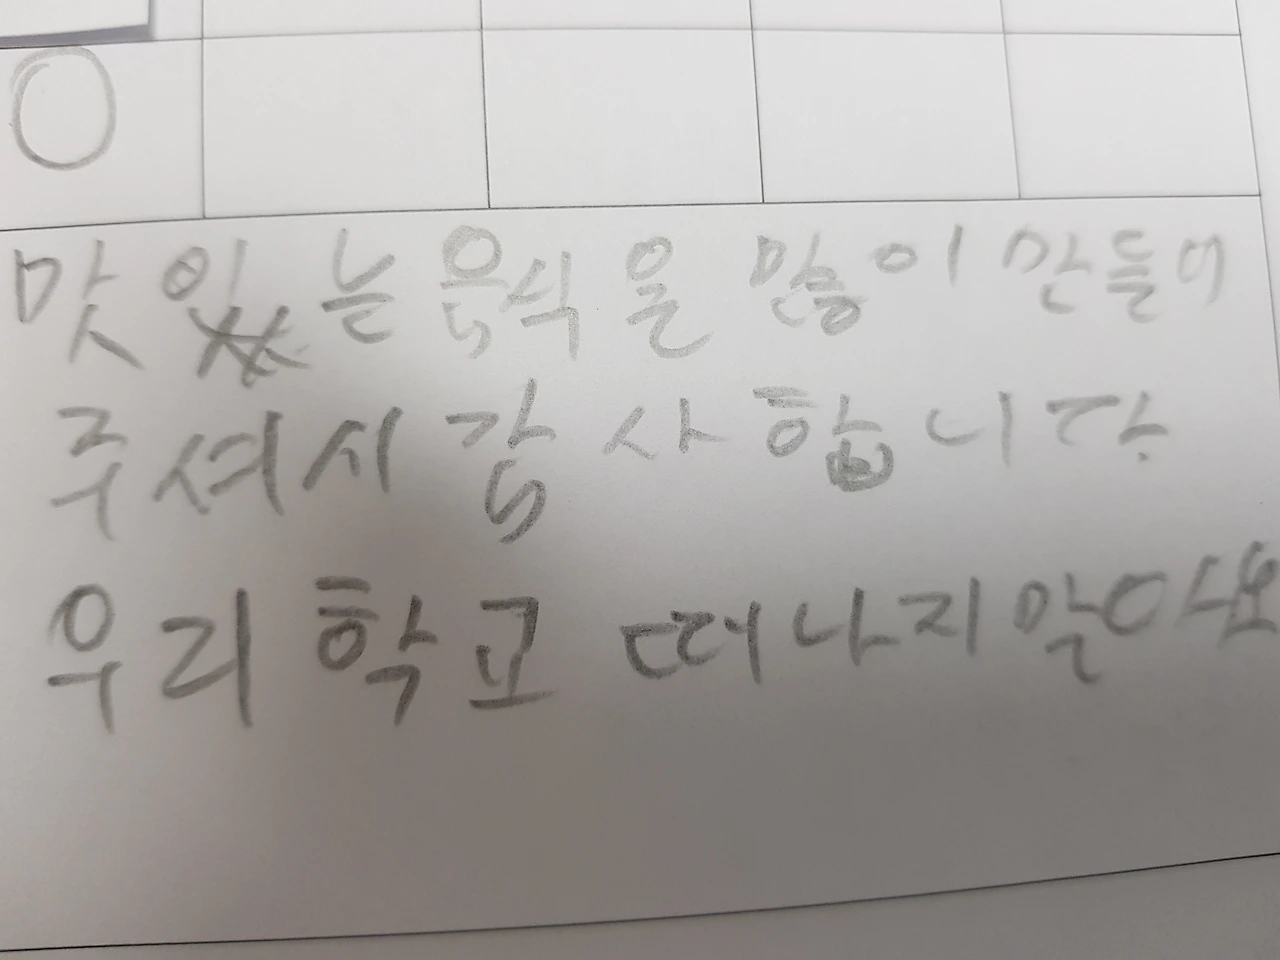 맛있는 음식을 많이 만들어
주셔시 감사합니다.
우리학교 떠나지말아쇼